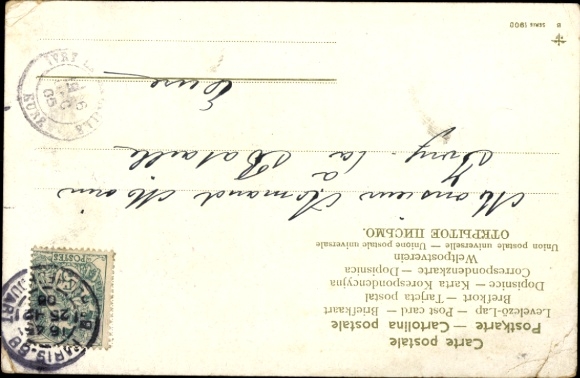 Carte postale
Postkarte — Cartolina postale
Levelező-Lap — Post card — Briefkaart
Brefkort — Tarjeta postal
Dopisnice — Karta Korespondencyjna
Correspondenzkarte — Dopisnica
Weltpostverein
Union postale universelle — Unione postale universale
ОТКРЫТОЕ ПИСЬМО.
Monsieur Armand
à
Ivry-la-Bataille
Eure
POSTES
PARIS-98
EURE
B SERIE 1900